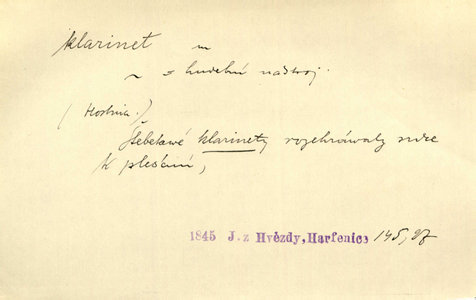 klarinet m
~ s hudební nástroj.
(Hostina.)
Štěbetawé klarinety rozehráwaly ruce
k pleskání,
1845 J. z Hvězdy, Harfenice 145,87